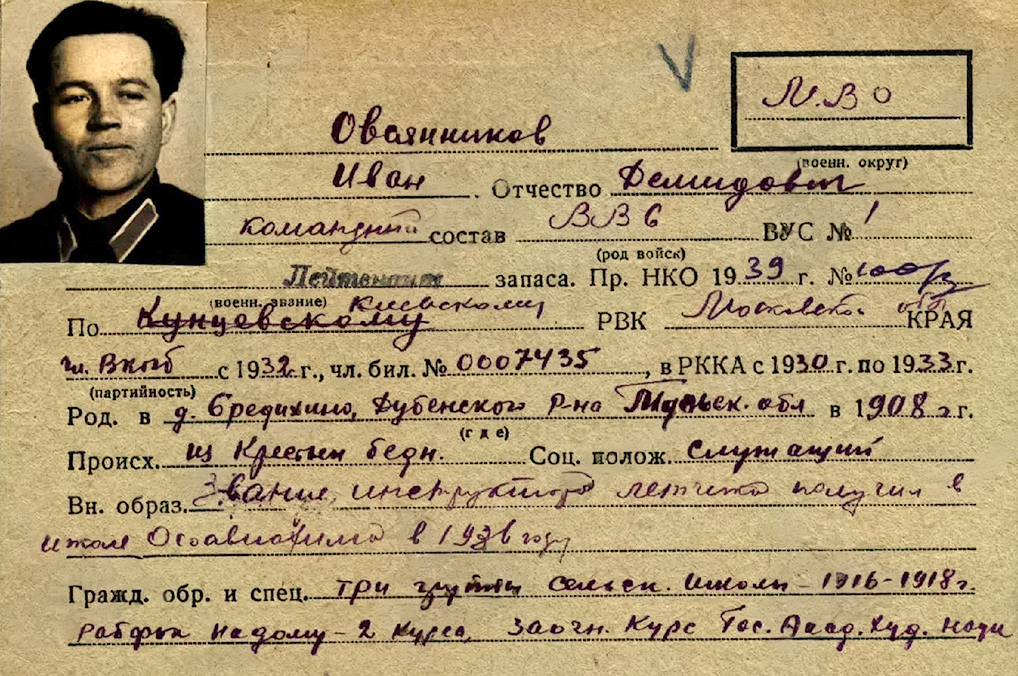 М.В О
(военн. округ)
Овсянников
Иван Отчество Демидович
командный состав ВВС ВУС № 1
(род войск)
Лейтенант запаса. Пр. НКО 1939 г. №
(военн. звание) Киевскому
По Кунцевскому РВК Московской обл КРАЯ
чл. Вкпб с 1932 г., чл. бил. № 0007435, в РККА с 1930 г. по 1933 г.
(партийность)
Род. в д. Бредихино, Дубенского р-на Тульск. обл в 1908 г.
(где)
Происх. из Крестьян бедн. Соц. полож. Служащий
Вн. образ. Звание инструктора летчика получил в
школе Осоавиахима в году
Гражд. обр. и спец. три группы сельск. школы – 1916-1918 г.
рабфак на дому – 2 курса, Заочн. Курс Гос. Акад. Худ. Наук